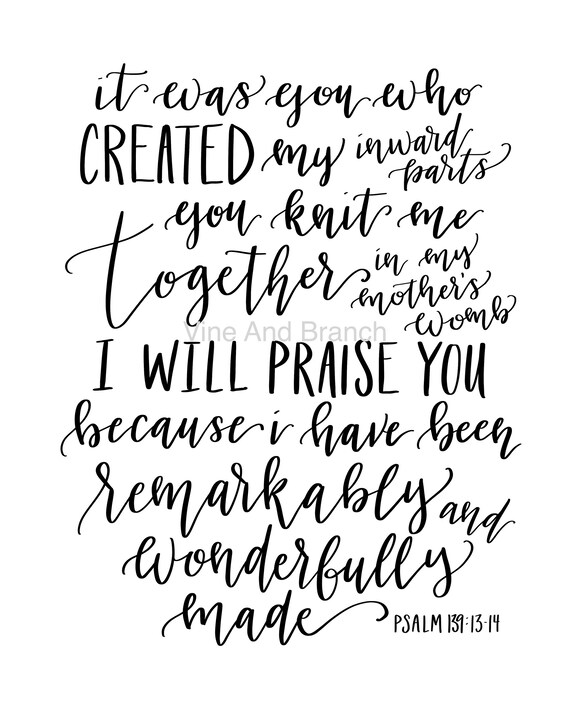 it was you who
CREATED my inward parts
you knit me
together in my mother's womb
Vine And Branch
I WILL PRAISE YOU
because i have been
remarkably and
wonderfully
made
PSALM 139:13-14